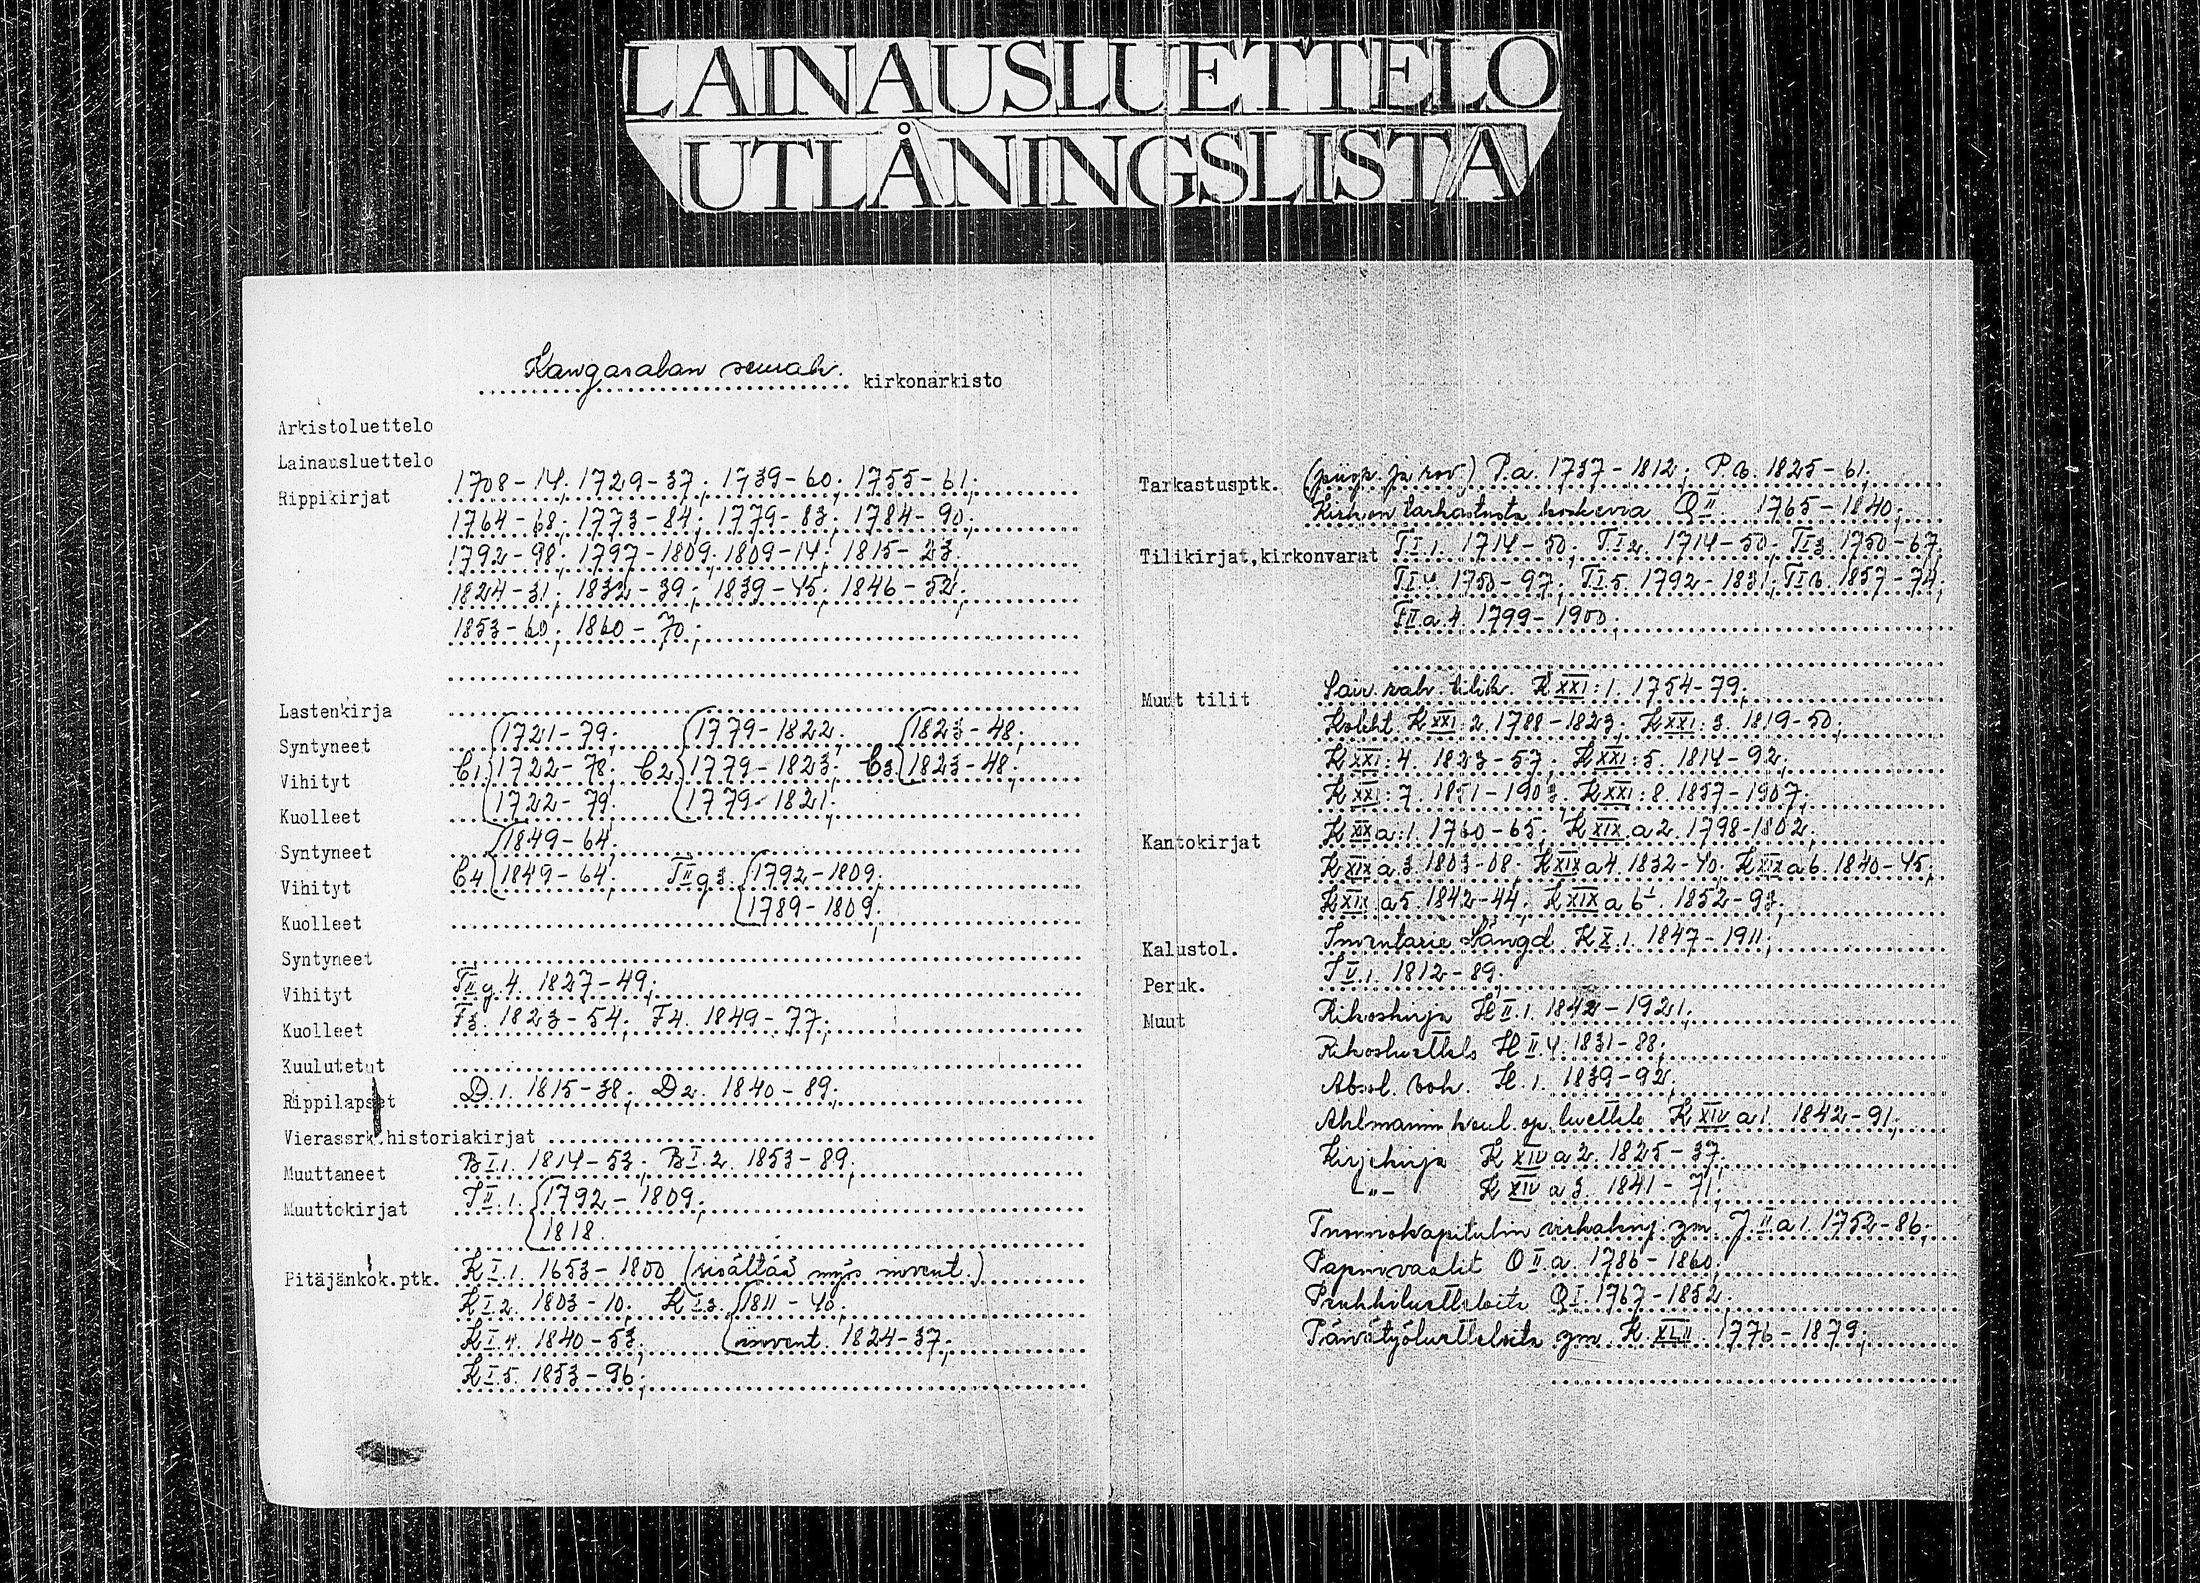 LAINAUSLUETTELO
UTLÅNINGSLISTA
Kangasalan seurak. kirkonarkisto
Arkistoluettelo
Lainausluettelo
Rippikirjat 1708-14; 1729-37; 1739-60; 1755-61;
1764-68; 1773-84; 1779-83; 1784-90;
1792-98; 1797-1809; 1809-14; 1815-23;
1824-31; 1832-39; 1839-45; 1846-52;
1853-60; 1860-70;
Lastenkirja
Syntyneet 1721-79; 1779-1822; 1823-48;
Vihityt C1. 1722-78; C2 1779-1823; C3. 1823-48;
Kuolleet 1722-79; 1779-1821;
Syntyneet 1849-64;
Vihityt C4 1849-64; TII g3. 1792-1809;
Kuolleet 1789-1809;
Syntyneet
Vihityt TII g.4. 1827-49;
Kuolleet F3. 1823-54; F4. 1849-77;
Kuulutetut
Rippilapset D.1. 1815-38; D2. 1840-89;
Vierassrk.historiakirjat
Muuttaneet BI.1. 1814-53; BI.2. 1853-89;
Muuttokirjat II.1. 1792-1809;
1818.
Pitäjänkok.ptk. KI.1. 1653-1800 (sisältää myös invent.)
KI.2. 1803-10; KI.3. 1811-40;
KI.4. 1840-53; invent. 1824-37;
KI.5. 1853-96;
Tarkastusptk. (piisp. ja rov.) P.a. 1737-1812; P.b. 1825-61;
Kirkon tarkastusta koskevia QII. 1765-1840;
Tilikirjat,kirkonvarat TI1. 1714-50; TI2. 1714-50; TI3. 1750-67;
TI4. 1750-97; TI.5. 1792-1831; TI6. 1857-74;
TII.a.4. 1799-1900;
Muut tilit Sair. rah. tilik. KXXI:1. 1754-79;
Koleht. KXXI:2. 1788-1823; KXXI:3. 1819-50;
KXXI:4. 1823-57; KXXI:5. 1814-92;
KXXI:7. 1851-1903; KXXI:8. 1857-1907;
Kantokirjat KXIX a:1. 1760-65; KXIX.a2. 1798-1802;
KXIX a.3. 1803-08; KXIX a4. 1832-40; KXIX a6. 1840-45;
KXIX a5. 1842-44; KXIX a 6¹. 1852-93;
Kalustol. Inventarie Längd KX.1. 1847-1911;
Peruk. IV.1. 1812-89;
Muut Rikoskirja HII.1. 1842-1921;
Rikosluettelo HII.4. 1831-88;
Absol. bok. H.1. 1839-92;
Ahlmannin koul. op. luettelo KXIV a1. 1842-91;
Kirjekirja KXIV a2. 1825-37;
-"- KXIV a3. 1841-71;
Tuomiokapitulin virkakirj. ym. J.II a1. 1752-86;
Papinvaalit OII a. 1786-1860;
Ruukkiluetteloita QI. 1767-1852;
Päivätyöluetteloita ym. K.XLII. 1776-1879;